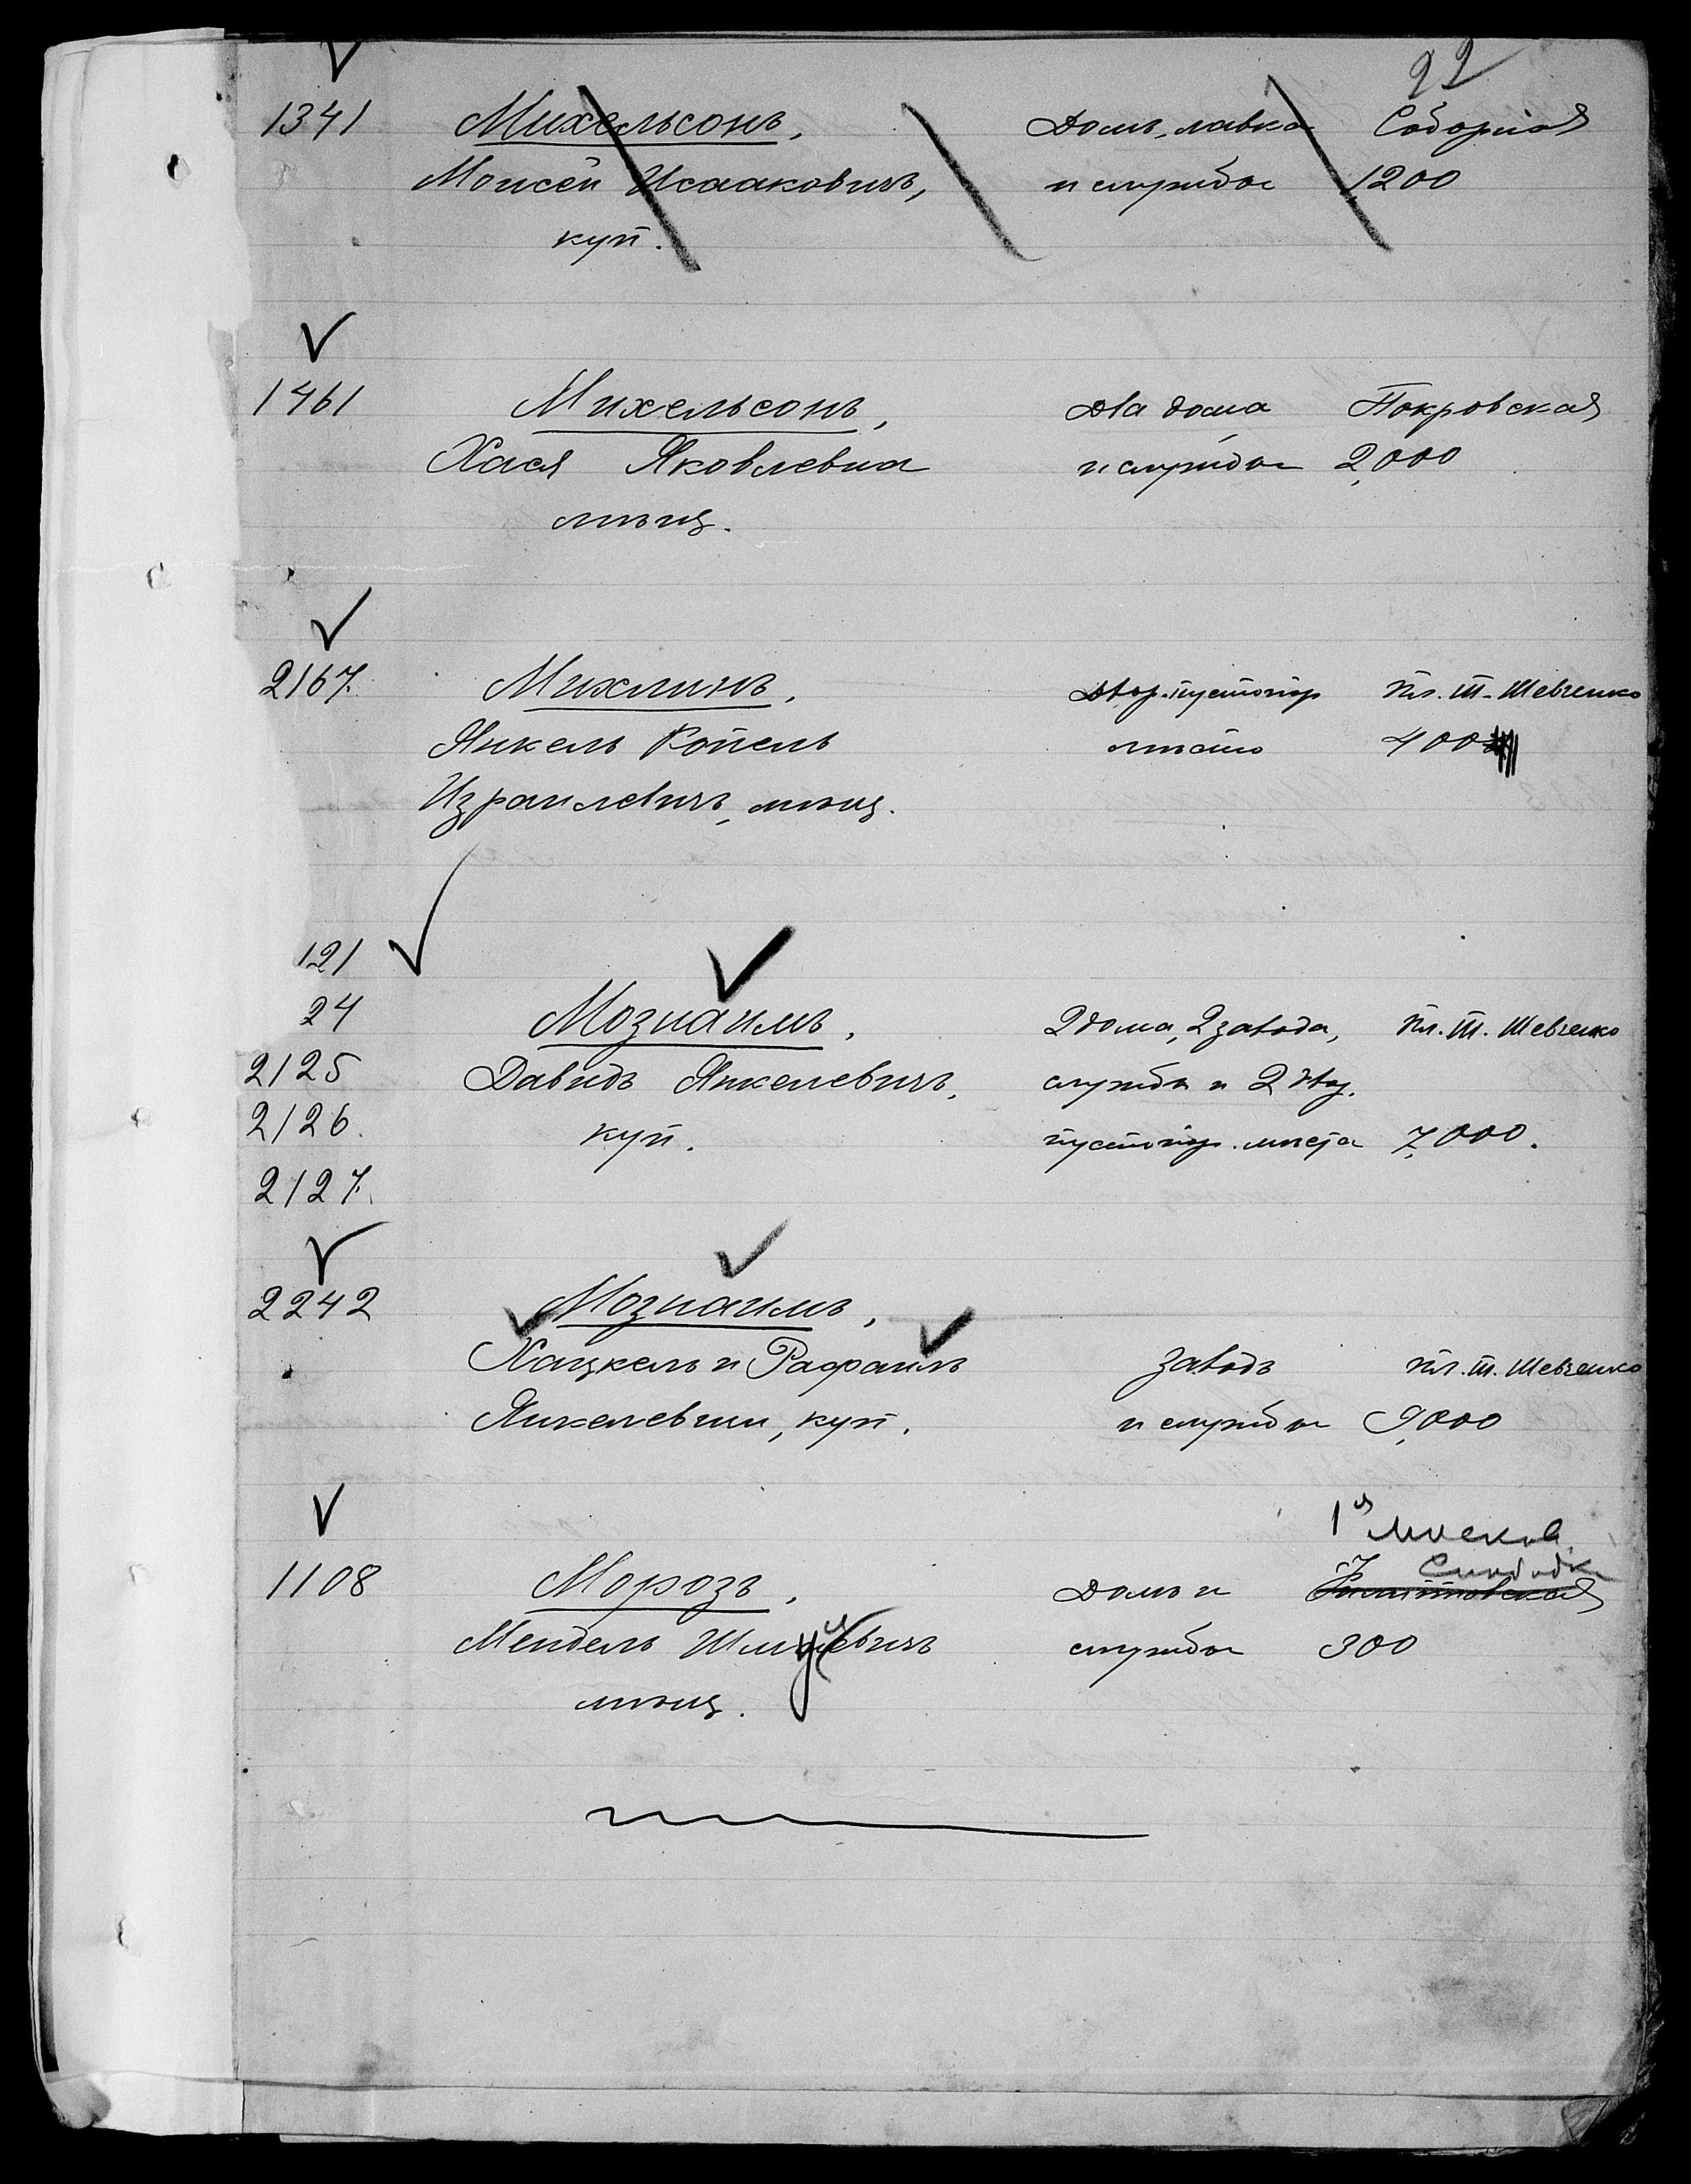 22
1341 Михельсонъ, Домъ, лавка Соборная
Моисей Исааковичъ, и службы 1200
куп.
1461 Михельсонъ, Два дома Покровская
Хася Яковлевна и службы 2,000
мѣщ.
2167. Михлинъ, Двор. пустопор Пл. Т. Шевченко
Янкель Копель мѣсто 400
Израилевичъ, мѣщ.
121
24 Мознаимъ, 2 дома, 2 завода, Пл. Т. Шевченко
2125 Давидъ Янкелевичъ, службы и 2 двор.
2126. куп. пустопор. мѣста 7,000.
2127.
2242 Мознаимъ,
Хацкель и Рафаилъ заводъ Пл. Т. Шевченко
Янкелевичи, куп. и службы 9,000
1я Москов.
Слободка
1108 Морозъ, Домъ и
Мендель службы 300
мѣщ.